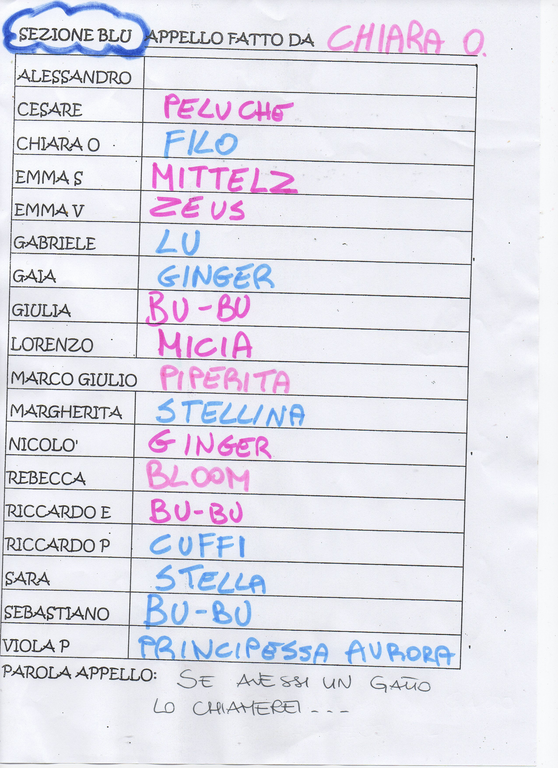 SEZIONE BLU APPELLO FATTO DA CHIARA O.
ALESSANDRO
CESARE PELUCHE
CHIARA O FILO
EMMA S MITTELZ
EMMA V ZEUS
GABRIELE LU
GAIA GINGER
GIULIA BU-BU
LORENZO MICIA
MARCO GIULIO PIPERITA
MARGHERITA STELLINA
NICOLO' GINGER
REBECCA BLOOM
RICCARDO E BU-BU
RICCARDO P CUFFI
SARA STELLA
SEBASTIANO BU-BU
VIOLA P PRINCIPESSA AURORA
PAROLA APPELLO: SE AVESSI UN GATTO
LO CHIAMEREI ---